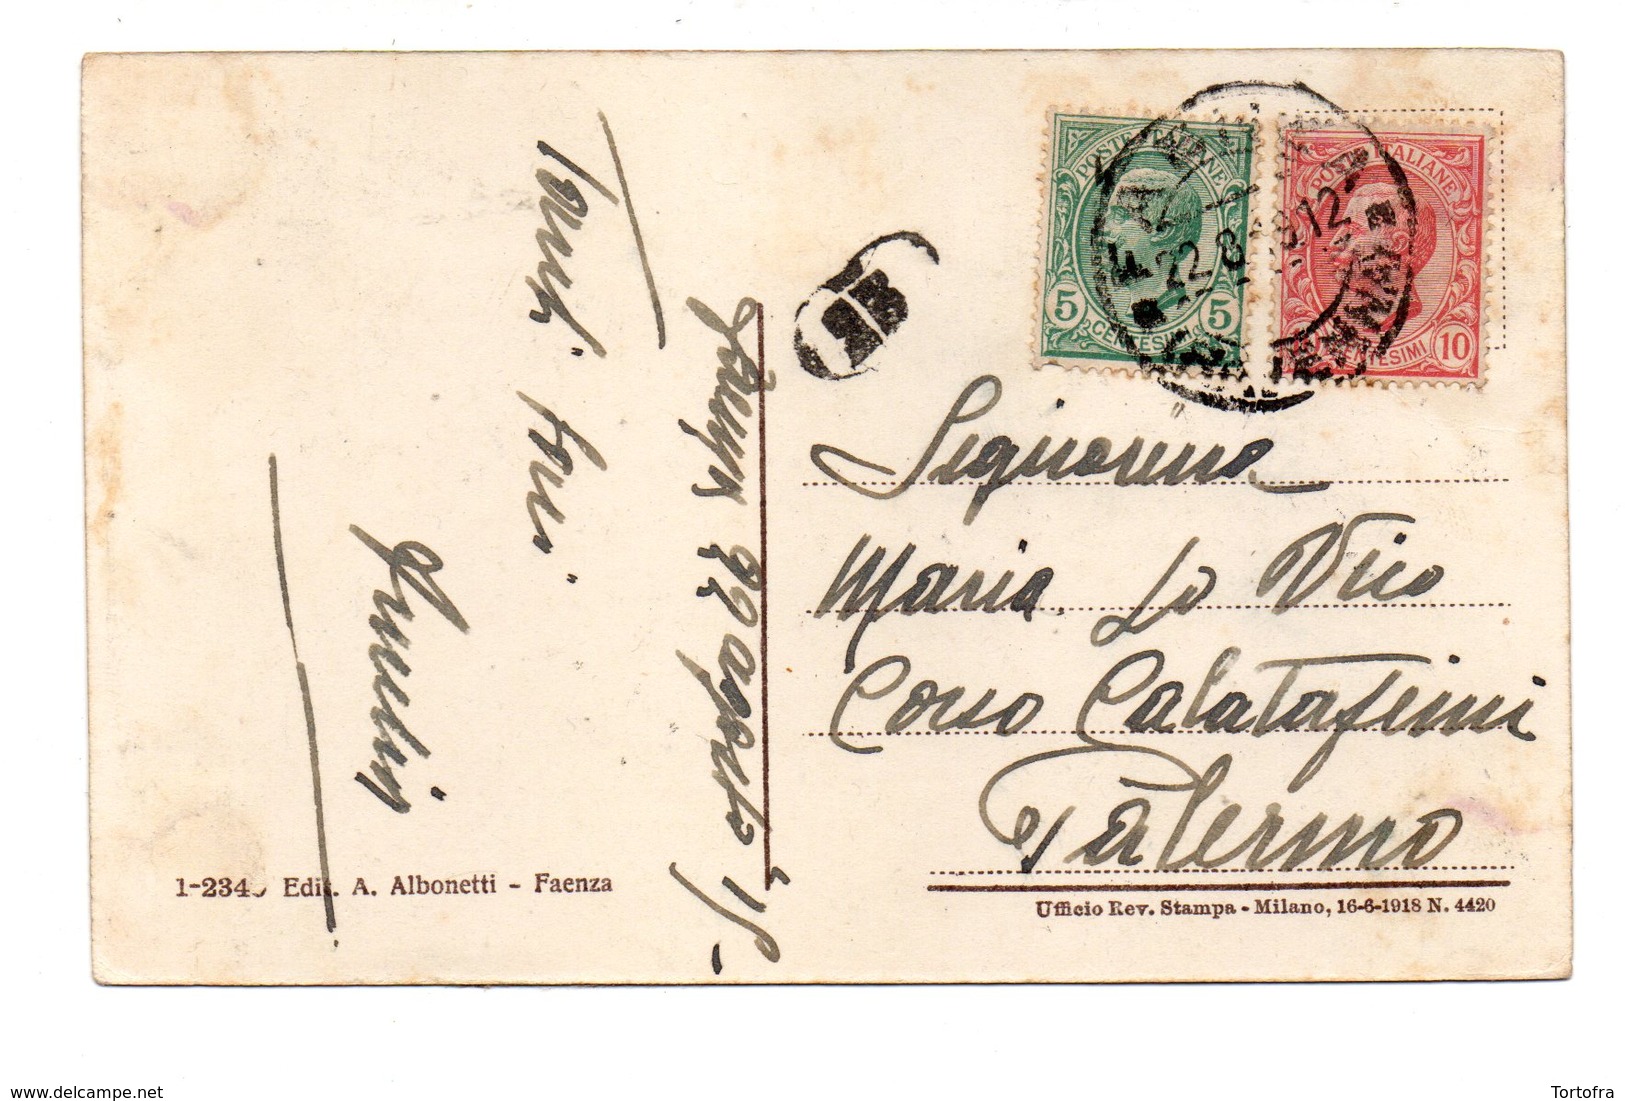 POSTE ITALIANE
5 CENTESIMI 5
POSTE ITALIANE
CENTESIMI 10
22 8 18 12
Signorina
Maria Lo Vico
Corso Calatafimi
Palermo
22 agosto '18
1-234 Edit. A. Albonetti - Faenza
Ufficio Rev. Stampa - Milano, 16-6-1918 N. 4420
www.delcampe.net
Tortofra